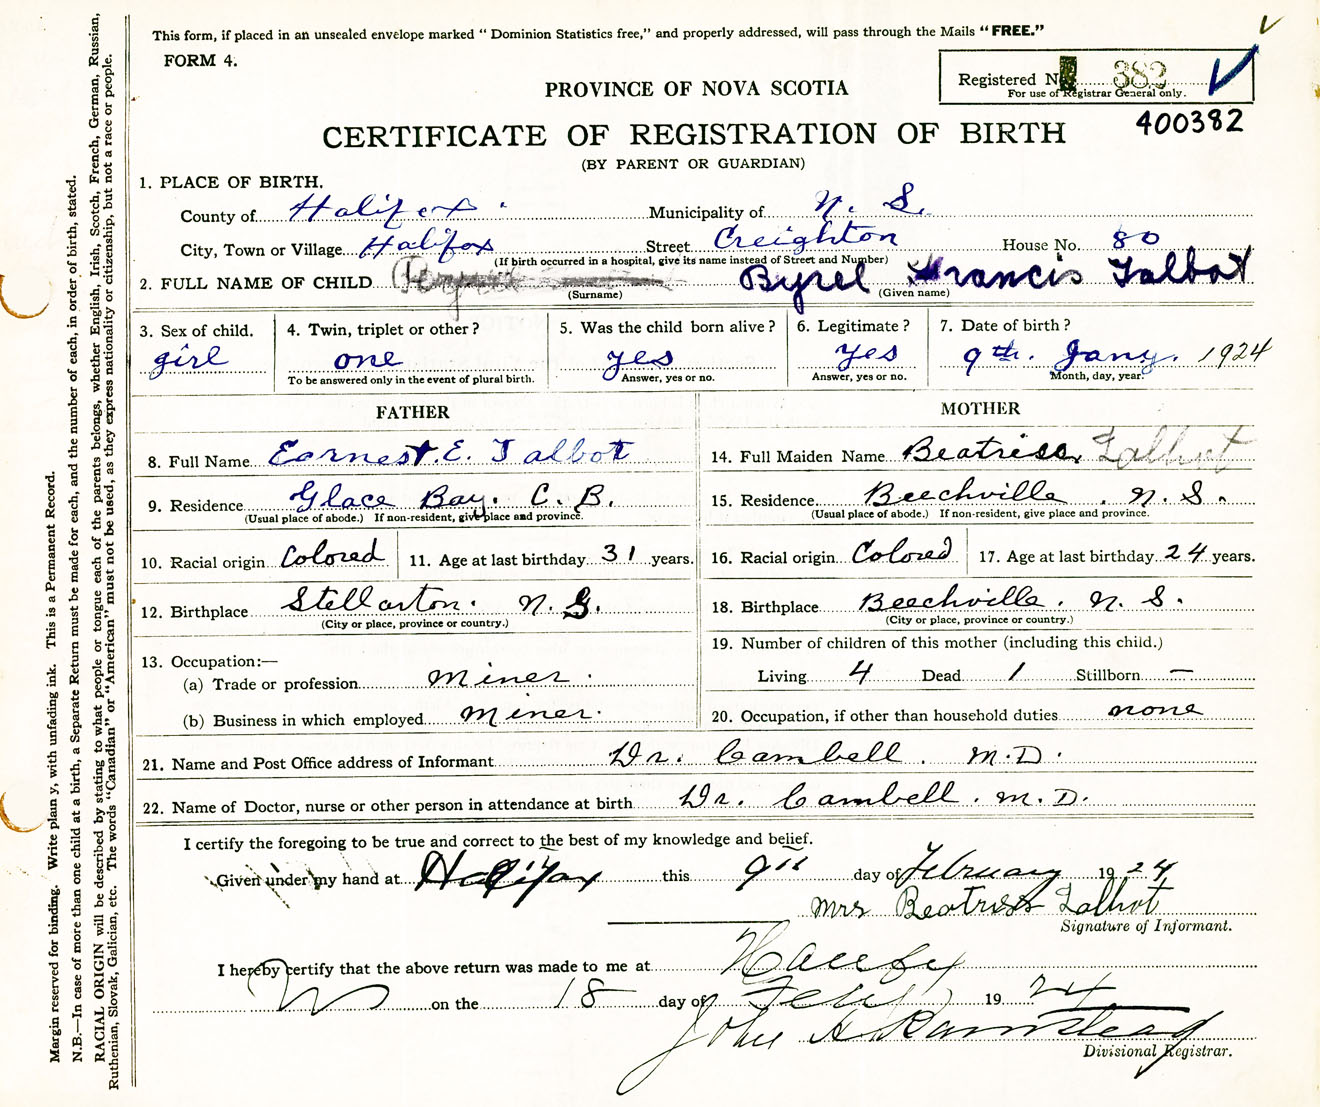 This form, if placed in an unsealed envelope marked "Dominion Statistics free," and properly addressed, will pass through the Mails "FREE."
FORM 4.
Registered No. 382
For use of Registrar General only.
400382
PROVINCE OF NOVA SCOTIA
CERTIFICATE OF REGISTRATION OF BIRTH
(BY PARENT OR GUARDIAN)
1. PLACE OF BIRTH.
County of Halifax Municipality of N. S.
City, Town or Village Halifox Street Creighton House No. 80
(If birth occurred in a hospital, give its name instead of Street and Number)
2. FULL NAME OF CHILD Byrel Francis Talbot
(Surname) (Given name)
3. Sex of child. 4. Twin, triplet or other? 5. Was the child born alive? 6. Legitimate? 7. Date of birth?
girl one yes yes 9th. Jany. 1924
To be answered only in the event of plural birth. Answer, yes or no. Answer, yes or no. Month, day, year.
FATHER MOTHER
8. Full Name Earnest. E. Talbot
14. Full Maiden Name Beatriss Talbot
9. Residence Glace Bay. C. B.
(Usual place of abode.) If non-resident, give place and province.
15. Residence Beechville. N. S.
(Usual place of abode.) If non-resident, give place and province.
10. Racial origin Colored 11. Age at last birthday 31 years.
16. Racial origin Colored 17. Age at last birthday 24 years.
12. Birthplace Stellarton. N. S.
(City or place, province or country.)
18. Birthplace Beechville. N. S.
(City or place, province or country.)
13. Occupation:—
(a) Trade or profession miner.
(b) Business in which employed miner.
19. Number of children of this mother (including this child.)
Living 4 Dead 1 Stillborn —
20. Occupation, if other than household duties none
21. Name and Post Office address of Informant Dr. Cambell. M.D.
22. Name of Doctor, nurse or other person in attendance at birth Dr. Cambell. M.D.
I certify the foregoing to be true and correct to the best of my knowledge and belief.
Given under my hand at Halifax this 9th day of February 1924
Mrs Beatriss Talbot
Signature of Informant.
I hereby certify that the above return was made to me at
on the 18 day of Feby 1924
John A Barnstead
Divisional Registrar.
Margin reserved for binding. Write plainly, with unfading ink. This is a Permanent Record.
N.B.—In case of more than one child at a birth, a Separate Return must be made for each, and the number of each, in order of birth, stated.
RACIAL ORIGIN will be described by stating to what people or tongue each of the parents belongs, whether English, Irish, Scotch, French, German, Russian,
Ruthenian, Slovak, Galician, etc. The words "Canadian" or "American" must not be used, as they express nationality or citizenship, but not a race or people.